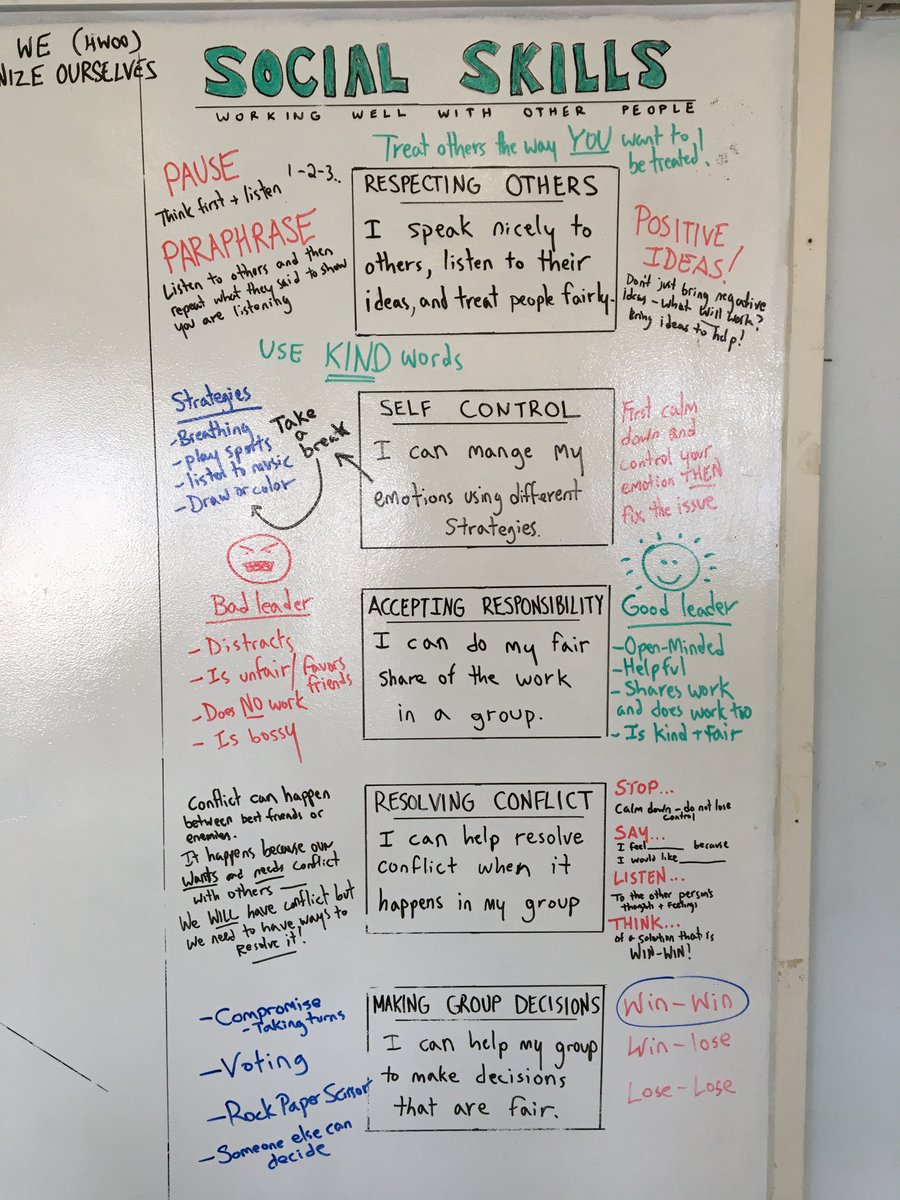 WE (HWOO)
NIZE OURSELVES
SOCIAL SKILLS
WORKING WELL WITH OTHER PEOPLE
Treat others the way YOU want to
be treated!
PAUSE
1-2-3..
Think first + listen
PARAPHRASE
Listen to others and then
repeat what they said to show
you are listening
RESPECTING OTHERS
I speak nicely to
others, listen to their
ideas, and treat people fairly.
POSITIVE
IDEAS!
Don't just bring negative
ideas - what will work?
Bring ideas to help!
USE KIND words
Strategies
- Breathing
- play sports
- listen to music
- Draw or color
Take
a
break
SELF CONTROL
I can mange my
emotions using different
Strategies.
First calm
down and
control your
emotion THEN
fix the issue
Bad leader
- Distracts
- Is unfair/favors
friends
- Does NO work
- Is bossy
ACCEPTING RESPONSIBILITY
I can do my fair
share of the work
in a group.
Good leader
- Open-Minded
- Helpful
- Shares work
and does work too
- Is kind + fair
Conflict can happen
between best friends or
enemies.
It happens because our
wants and needs conflict
with others
We WILL have conflict but
we need to have ways to
Resolve it!
RESOLVING CONFLICT
I can help resolve
conflict when it
happens in my group
STOP...
Calm down - do not lose
control
SAY...
I feel____ because
I would like____
LISTEN...
To the other person's
thoughts + feelings
THINK...
of a solution that is
WIN-WIN!
- Compromise
- Taking turns
- Voting
- Rock Paper Scissors
- Someone else can
decide
MAKING GROUP DECISIONS
I can help my group
to make decisions
that are fair.
Win-Win
Win-lose
Lose-Lose